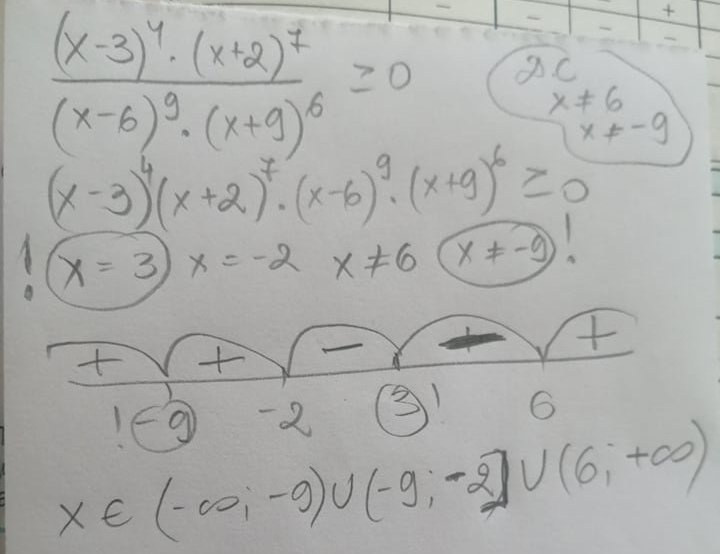 (x-3)⁴·(x+2)⁷
(x-6)⁹·(x+9)⁶ ≥0
DC
x≠6
x≠-9
(x-3)⁴(x+2)⁷·(x-6)⁹·(x+9)⁶ ≥0
! x=3 x=-2 x≠6 x≠-9!
+ + - +
!-9 -2 3! 6
x∈(-∞;-9)∪(-9;-2]∪(6;+∞)
- - +
- -